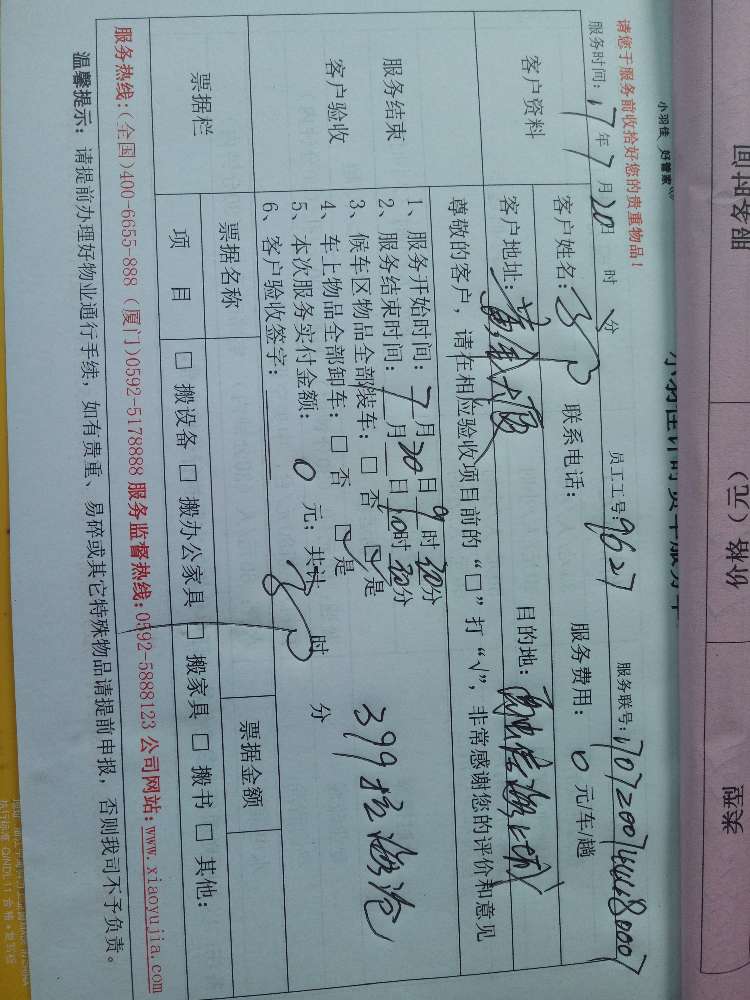 服务时间
价格（元）
类型
小羽佳 好管家
请您于服务前收拾好您的贵重物品！
员工工号：9627
服务联号：
服务时间：17年7月20日 时 分
客户资料
客户姓名：
联系电话：
服务费用：0元/车/趟
客户地址：黄金大厦
目的地：
尊敬的客户，请在相应验收项目前的“□”打“√”，非常感谢您的评价和意见
服务结束
客户验收
1、服务开始时间：7月20日9时30分
2、服务结束时间： 月 日10时30分
3、候车区物品全部装车：□否 ☑是
4、车上物品全部卸车：□否 ☑是
5、本次服务实付金额：0元；共计 时 分
6、客户验收签字：
票据栏
票据名称
票据金额
项 目
□搬设备 □搬办公家具 □搬家具 □搬书 □其他：
服务热线：(全国)400-6655-888 (厦门)0592-5178888 服务监督热线：0592-5888123 公司网站：www.xiaoyujia.com
温馨提示：请提前办理好物业通行手续，如有贵重、易碎或其它特殊物品请提前申报，否则我司不予负责。